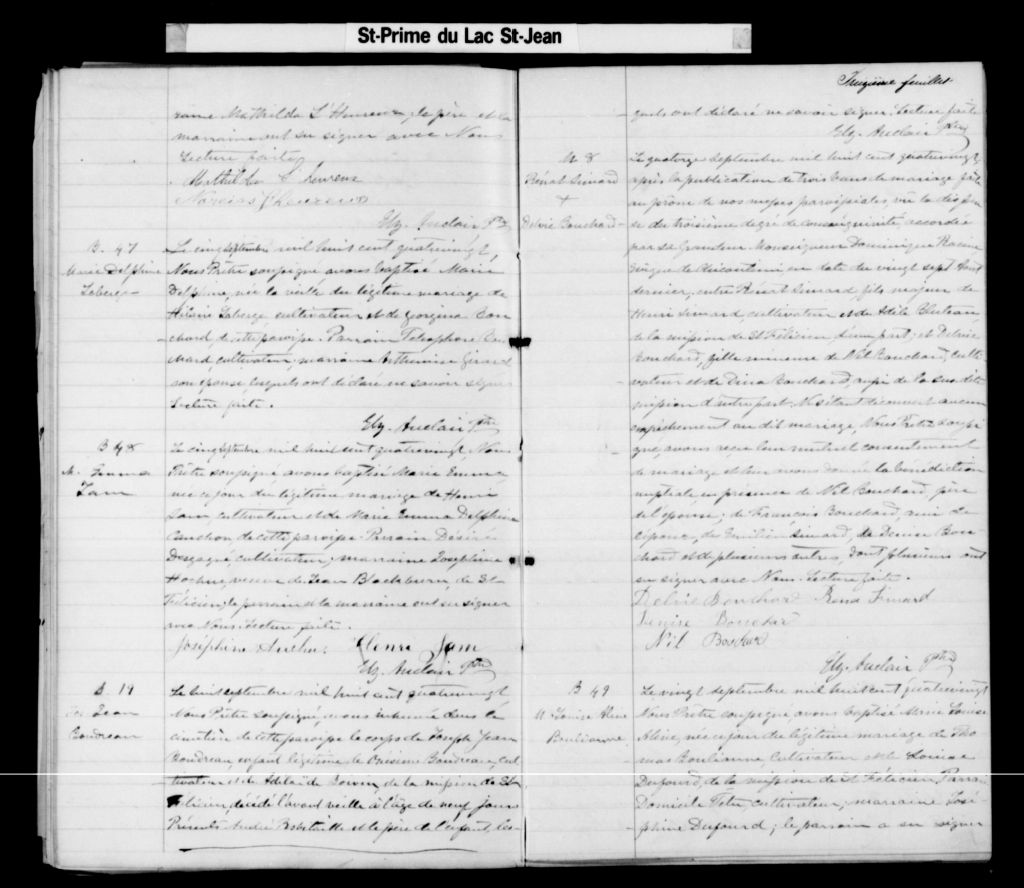 St-Prime du Lac St-Jean
Mathilda L'Heureux, le père et la
marraine ont su signer avec Nous
Lecture faite,
Mathilda L'heureux
Narciss L'heureux
Elz. Auclair Ptre
B. 47
Marie Delphine
Laberge
Le cinq septembre mil huit cent quatrevingt,
Nous Prêtre soussigné avons baptisé Marie
Delphine, née la veille du légitime mariage de
Hilaire Laberge, cultivateur et de Georgina Bou
chard, de cette paroisse. Parrain Télesphore Bou
chard, cultivateur, marraine Girard
son épouse lesquels ont déclaré ne savoir signer
Lecture faite.
Elz. Auclair Ptre
B 48
M. Emma
Jam
Le cinq septembre mil huit cent quatrevingt Nous
Prêtre soussigné, avons baptisé Marie Emma,
née ce jour du légitime mariage de Henri
Jam, cultivateur et de Marie Emma Delphine
Cauchon de cette paroisse. Parrain Désiré
Desgagné, cultivateur, marraine Josephine
veuve de Jean Blackburn, de St
Félicien, le parrain et la marraine ont su signer
avec Nous. Lecture faite.
Joséphine Henri Jam
Elz. Auclair Ptre
S. 19
Jos Jean
Boudreau
Le huit septembre mil huit cent quatrevingt
Nous Prêtre soussigné, avons inhumé dans le
cimetière de cette paroisse le corps de Joseph Jean
Boudreau, enfant légitime de Onésime Boudreau, cul
tivateur et de Adélaïde de la mission de St
Félicien, décédé l'avant veille à l'âge de neuf jours
Présents André Robitaille et le père de l'enfant, les-
feuillet
quels ont déclaré ne savoir signer. Lecture faite
Elz. Auclair Ptre
M 8
Rénat Simard
+
Delvie Bouchard
Le quatorze septembre mil huit cent quatrevingt,
après la publication de trois bans de mariage faite
au prône de nos messes paroissiales, vu la dispen
se du troisième degré de consanguinité, accordée
par sa Grandeur Monseigneur Dominique Racine
évêque de Chicoutimi, en date du vingt sept Août
dernier, entre Rénat Simard, fils majeur de
Henri Simard cultivateur et de Adèle Bluteau
de la mission de St Félicien d'une part; et Delvie
Bouchard, fille mineure de Nil Bouchard, culti
vateur et de Dina Bouchard, aussi de la susdite
mission d'autre part. Ne s'étant découvert aucun
empêchement au dit mariage, Nous Prêtre soussi
gné avons reçu leur mutuel consentement
de mariage et leur avons donné la bénédiction
nuptiale en présence de Nil Bouchard, père
de l'épouse; de François Bouchard, ami de
l'époux, de Simard, de Denise Bou
chard et de plusieurs autres, dont plusieurs ont
su signer avec Nous. Lecture faite.
Delvie Bouchard Rena Simard
Denise Bouchar
Nil Bouchar
Elz. Auclair Ptre
B 49
M. Louise Aline
Boulianne
Le vingt septembre mil huit cent quatrevingt
Nous Prêtre soussigné avons baptisé Marie Louise
Aline, née ce jour du légitime mariage de Tho
mas Boulianne, cultivateur et de Louise
Dufourd, de la mission de St Félicien, Parrain
Domicile Têtu cultivateur, marraine José-
phine Dufourd; le parrain a su signer